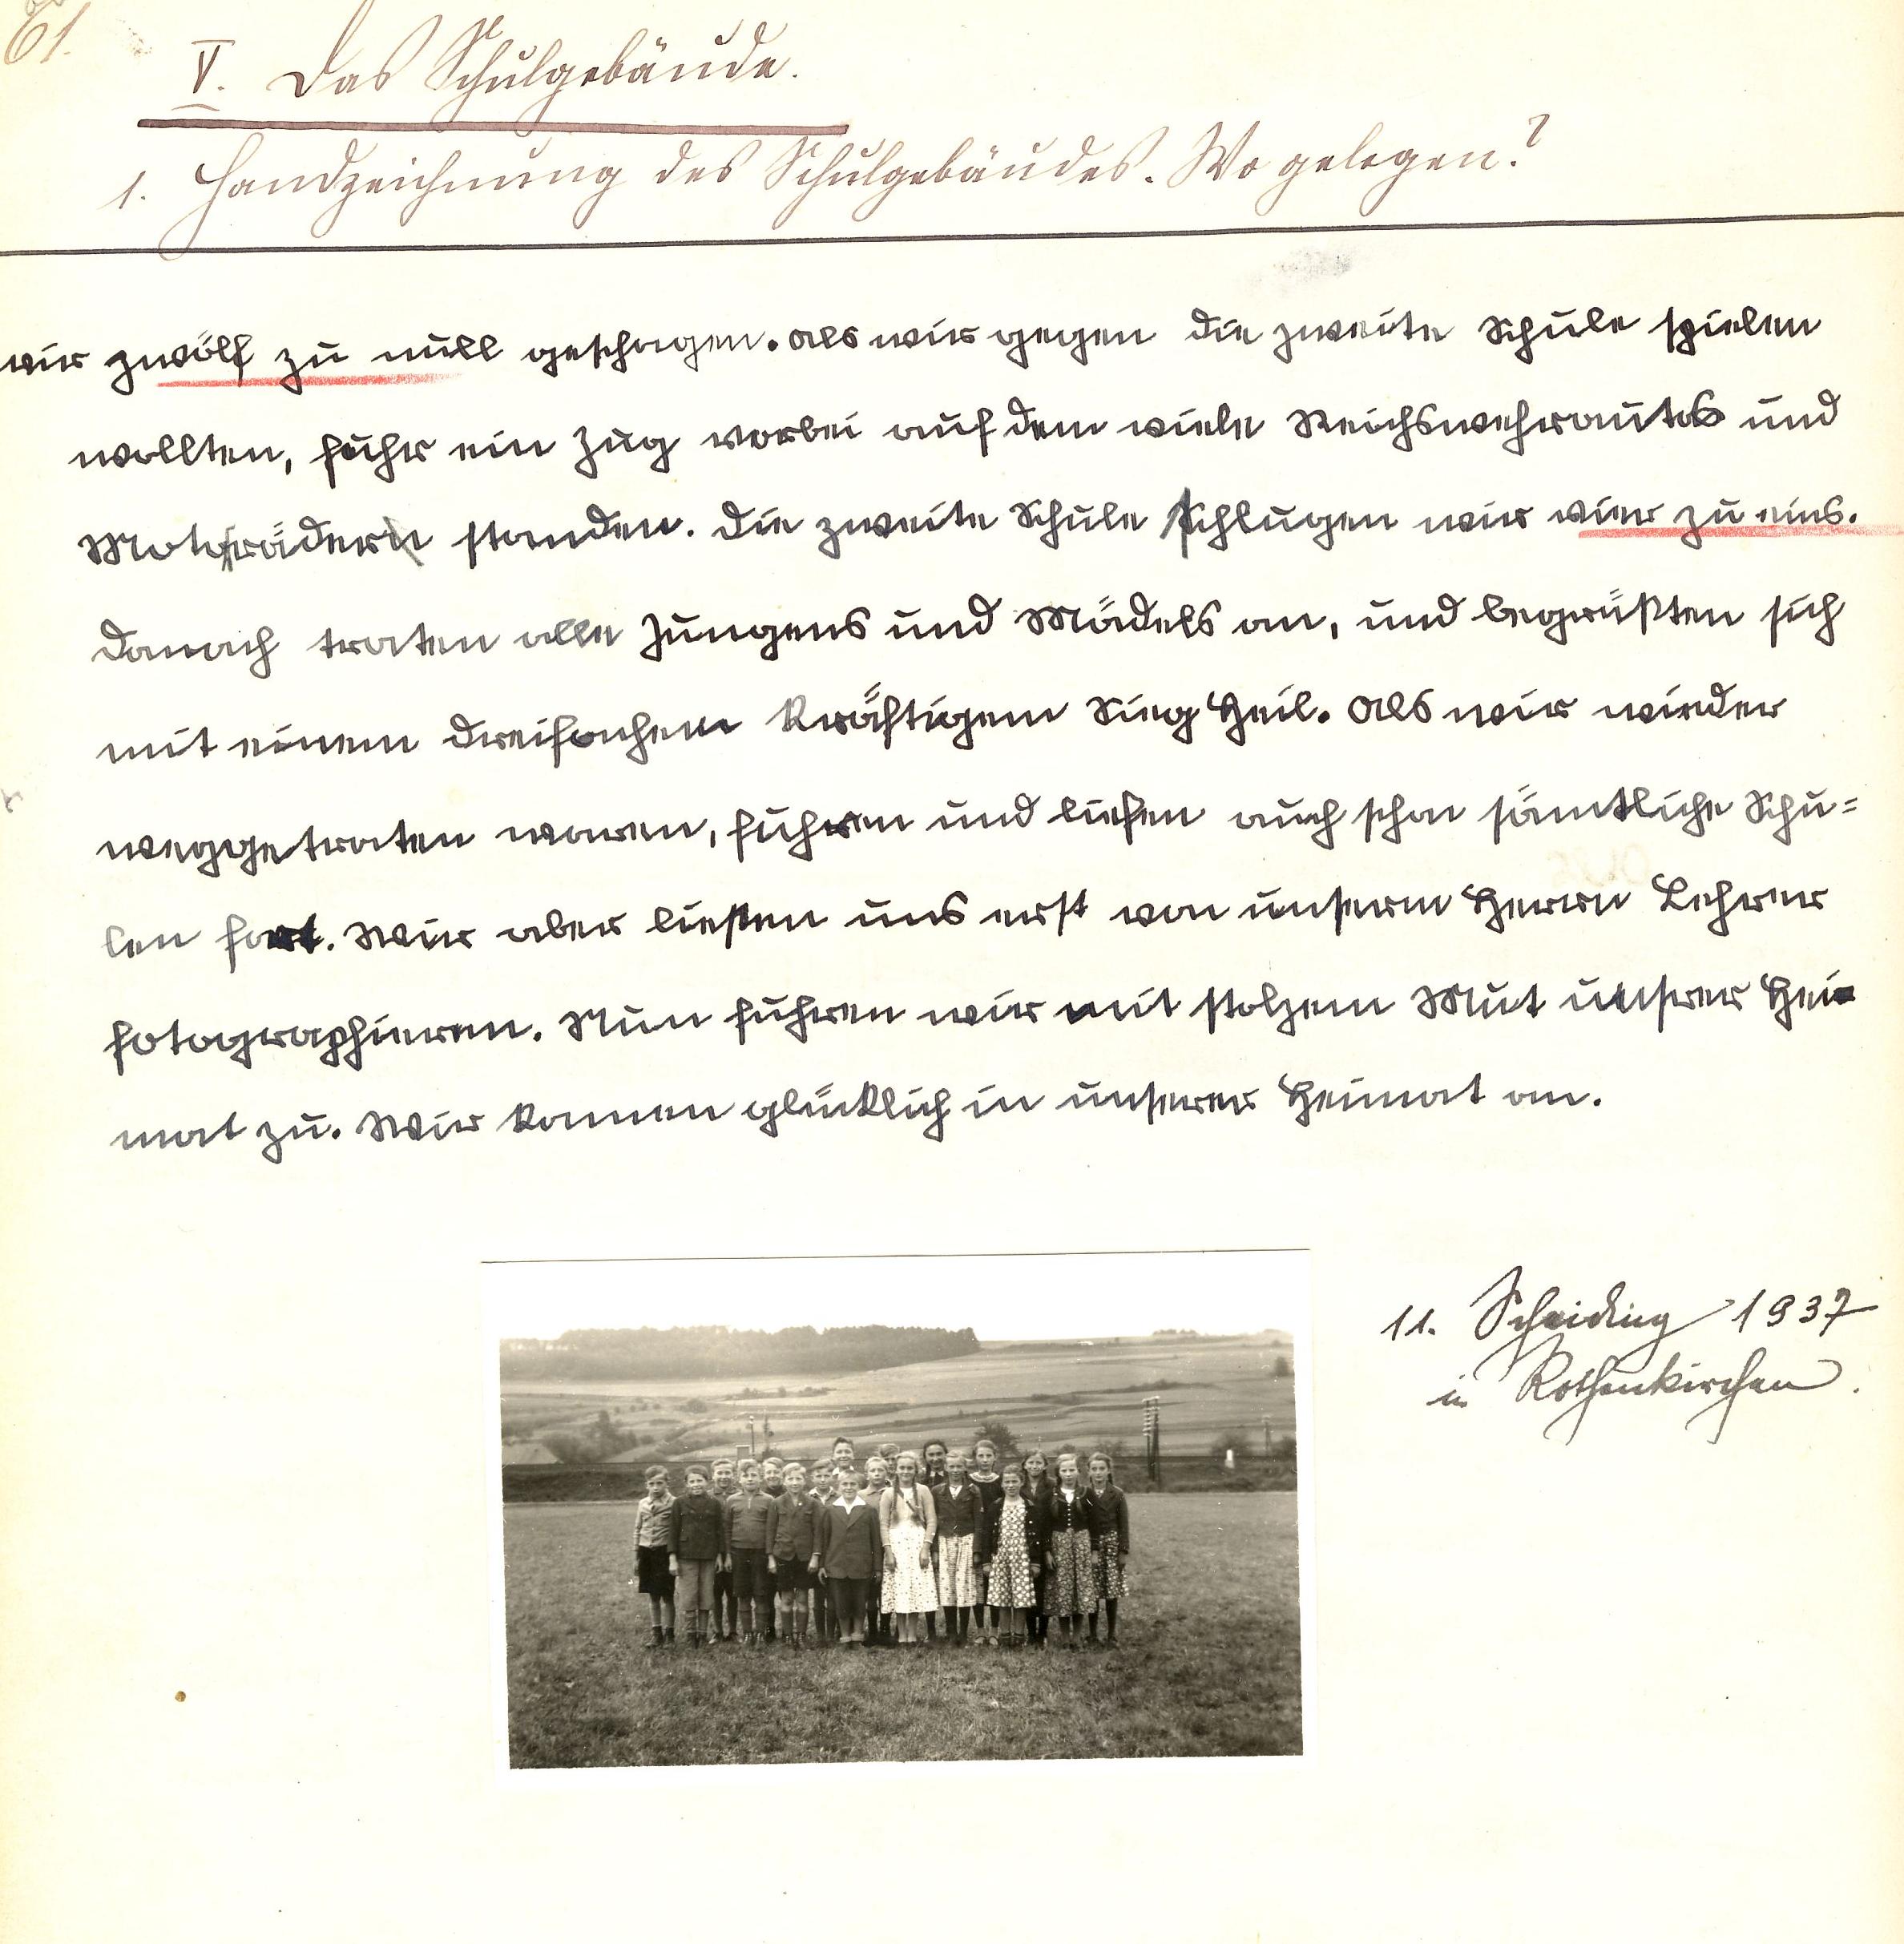 61.
V. Das Schulgebäude.
1. Handzeichnung des Schulgebäudes. Wo gelegen?
wir zwölf zu null geschagen. Als wir gegen die zweite Schule spielen
wollten, fuhr ein Zug vorbei auf dem viele Reichswehrautos und
Motorräder standen. Die zweite Schule schlugen wir vier zu eins.
Danach traten alle Jungens und Mädels an, und begrüßten sich
mit einem dreifachem kräftigem Sieg Heil. Als wir wieder
weggetraten waren, fuhren und liefen auch schon sämtliche Schu=
len fort. Wir aber ließen uns erst von unserm Herrn Lehrer
fotographieren. Nun fuhren wir mit stolzem Mut unsrer Hei
mat zu. Wir kamen glücklich in unserer Heimat an.
11. Scheiding 1937
in Rothenkirchen.